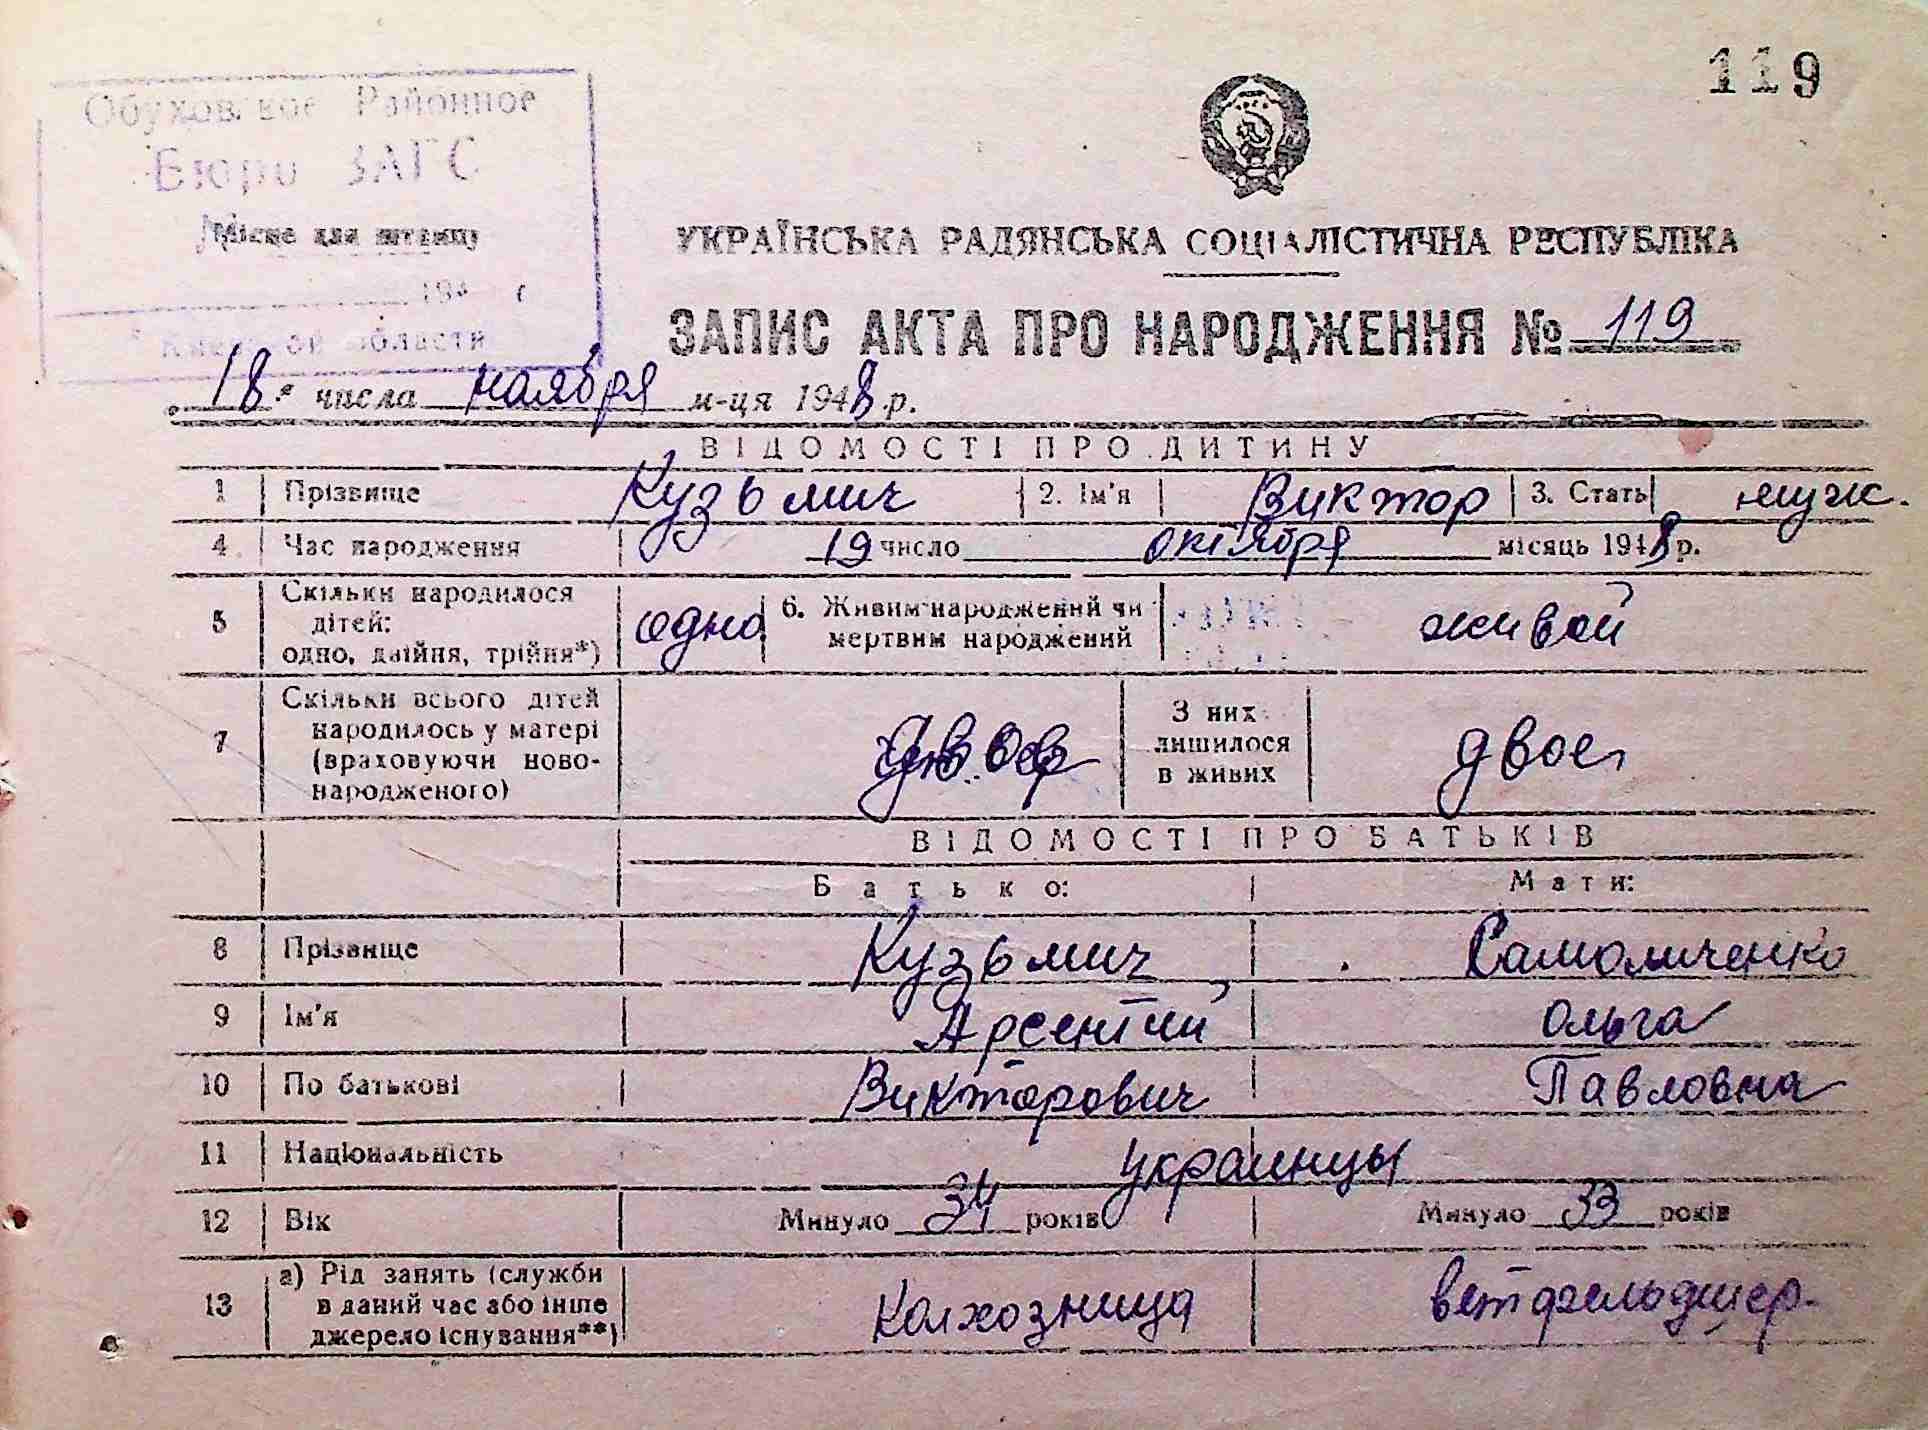 119
Обуховское Районное
Бюро ЗАГС
Місце для штампу
194
Киевской области
УКРАЇНСЬКА РАДЯНСЬКА СОЦІАЛІСТИЧНА РЕСПУБЛІКА
ЗАПИС АКТА ПРО НАРОДЖЕННЯ № 119
18 числа ноября м-ця 1948 р.
ВІДОМОСТІ ПРО ДИТИНУ
1 Прізвище Кузьмич 2. Ім'я Виктор 3. Стать муж.
4 Час народження 19 число октября місяць 1948 р.
5 Скільки народилося дітей: одно, двійня, трійня*) одно 6. Живим народжений чи мертвим народжений живой
7 Скільки всього дітей народилось у матері (враховуючи новонародженого) двое З них лишилося в живих двое
ВІДОМОСТІ ПРО БАТЬКІВ
Батько: Мати:
8 Прізвище Кузьмич
9 Ім'я Арсентий Ольга
10 По батькові Викторович Павловна
11 Національність украинцы
12 Вік Минуло 34 років Минуло 33 років
13 а) Рід занять (служби в даний час або інше джерело існування**) Колхозница ветфельдшер.